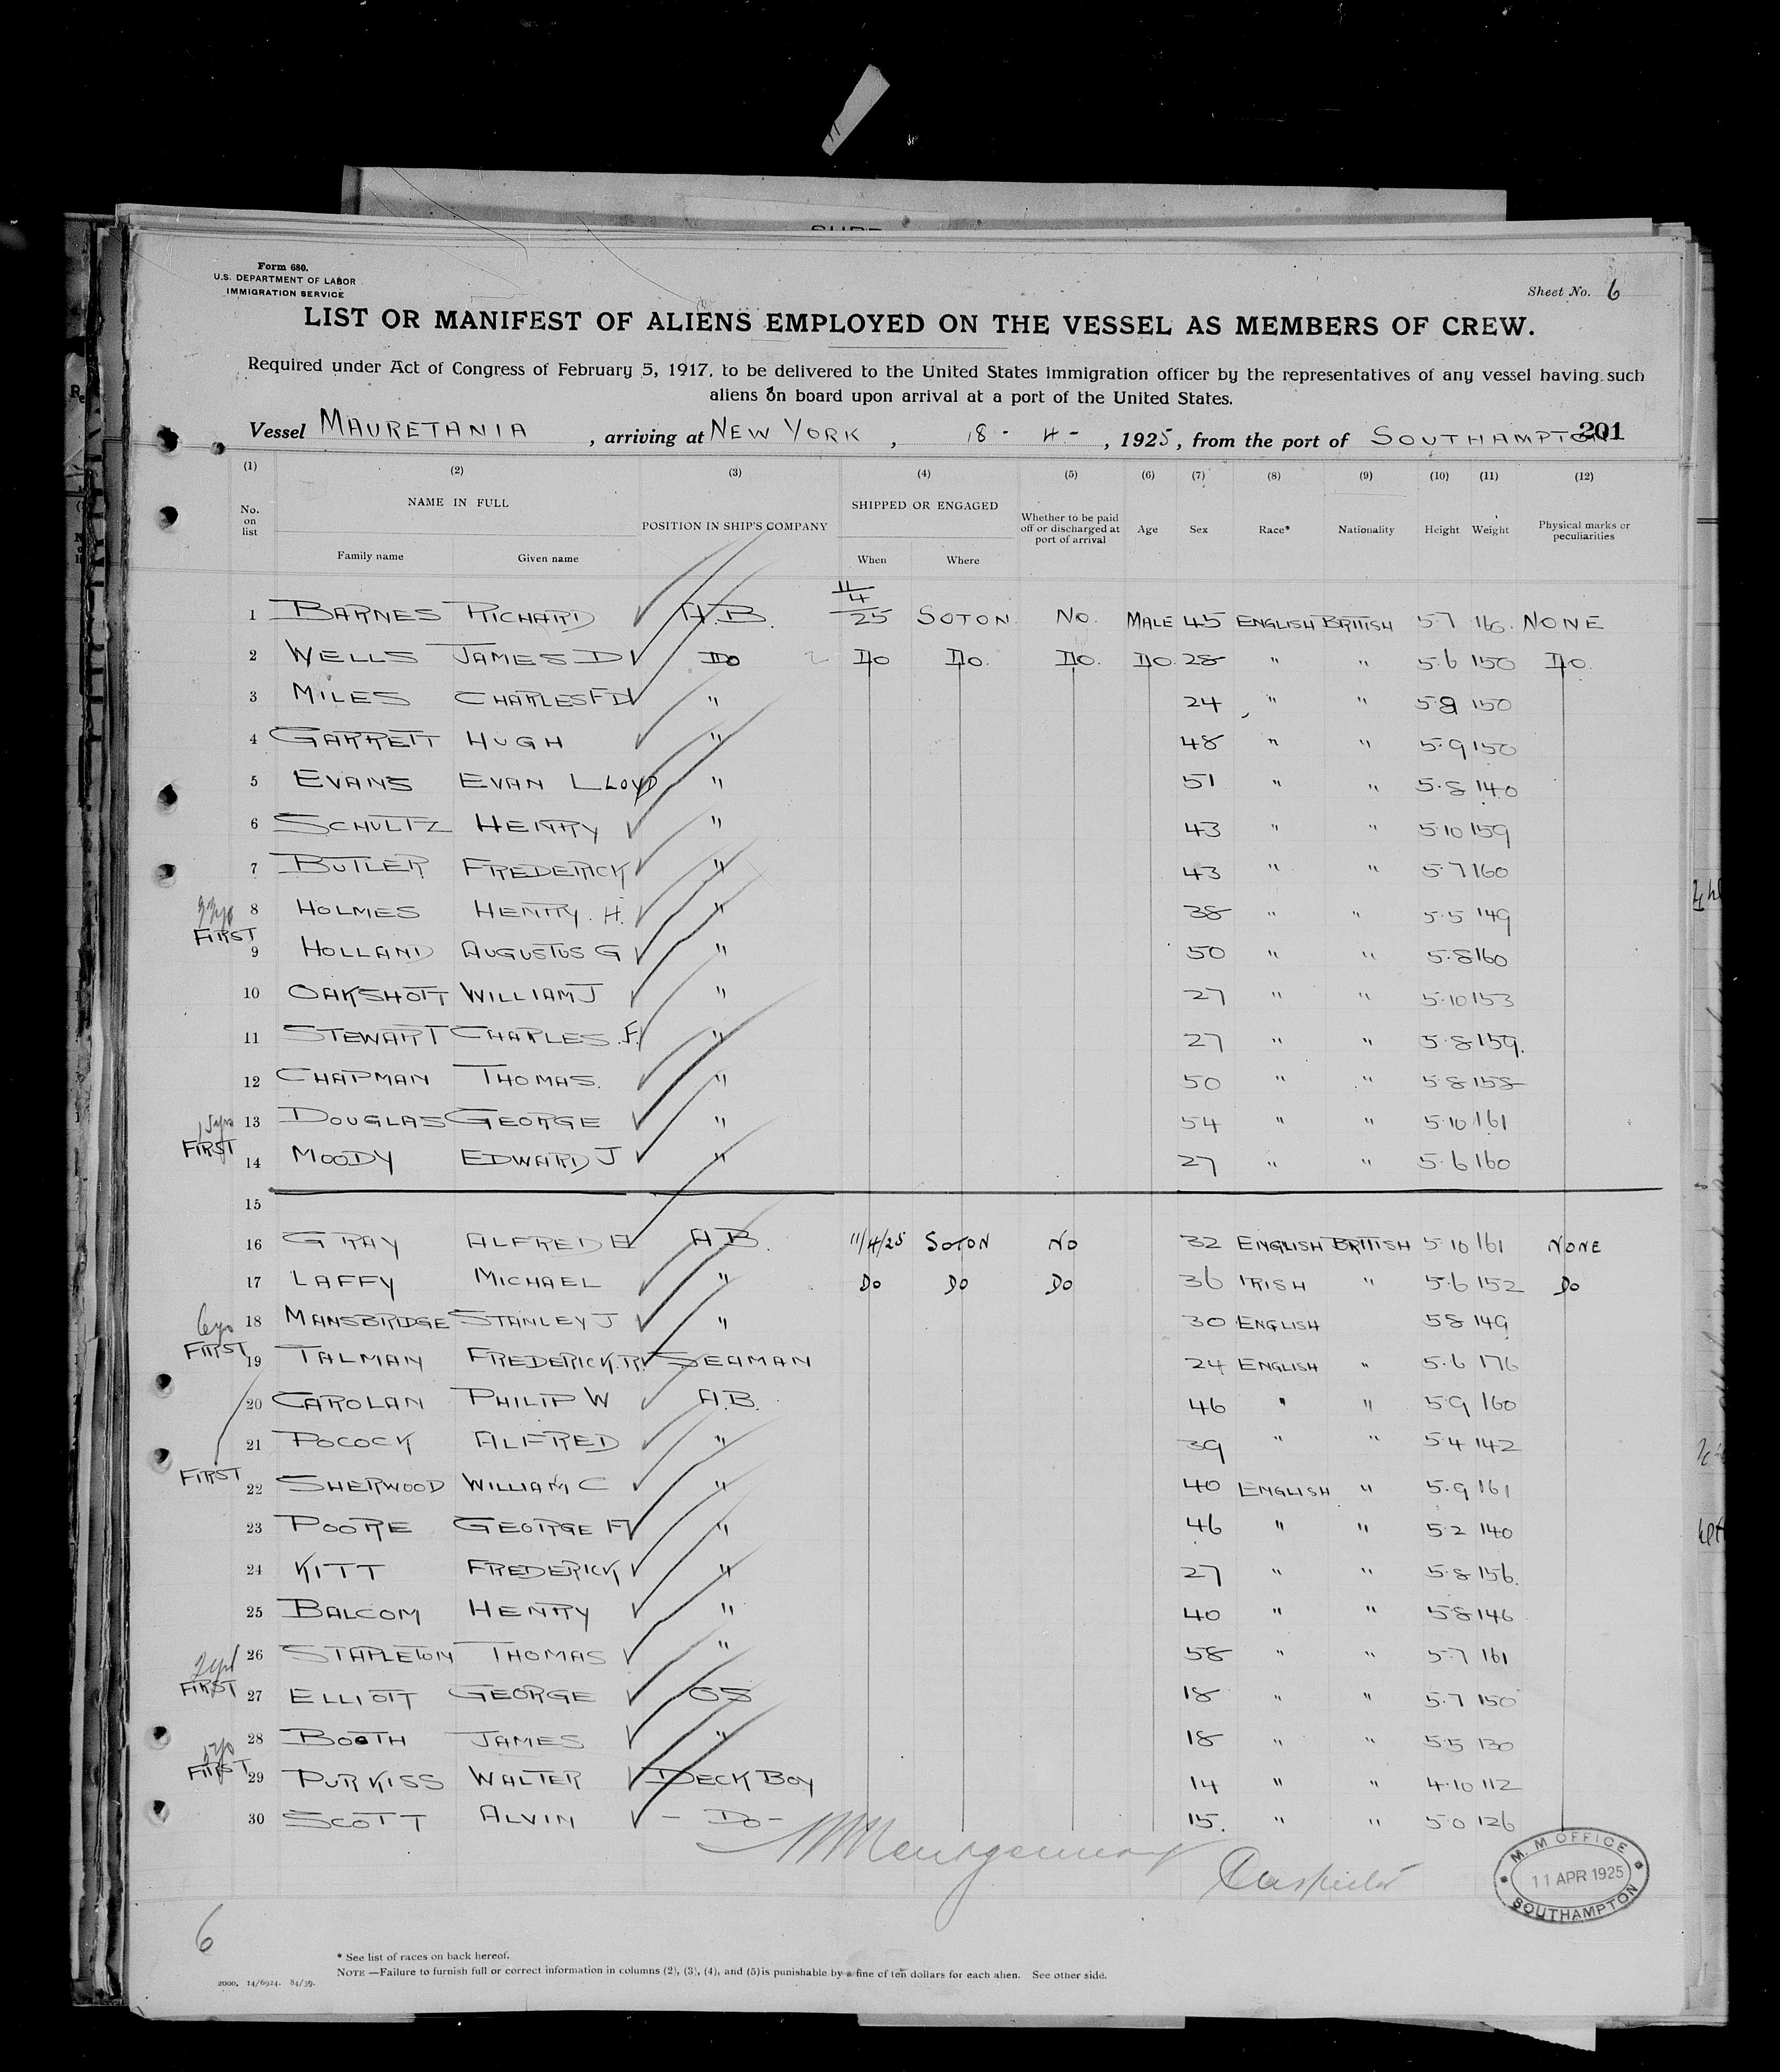 Form 680.
U.S. DEPARTMENT OF LABOR
IMMIGRATION SERVICE
Sheet No. 6
LIST OR MANIFEST OF ALIENS EMPLOYED ON THE VESSEL AS MEMBERS OF CREW.
Required under Act of Congress of February 5, 1917, to be delivered to the United States immigration officer by the representatives of any vessel having such
aliens on board upon arrival at a port of the United States.
Vessel MAURETANIA, arriving at NEW YORK, 18 - 4 -, 1925, from the port of SOUTHAMPTON 201
(1) (2) (3) (4) (5) (6) (7) (8) (9) (10) (11) (12)
No. on list NAME IN FULL Family name Given name POSITION IN SHIP'S COMPANY SHIPPED OR ENGAGED When Where Whether to be paid off or discharged at port of arrival Age Sex Race* Nationality Height Weight Physical marks or peculiarities
1 BARNES RICHARD A.B. 11/4/25 SOTON. NO. MALE 45 ENGLISH BRITISH 5.7 NONE
2 WELLS JAMES D DO DO DO. DO. DO. 28 " " 5.6 150 DO.
3 MILES CHARLES F D " 24 " " 150
4 GARRETT HUGH " 48 " " 5.9 150
5 EVANS EVAN LLOYD " 51 " " 5.8 140
6 SCHULTZ HENRY " 43 " " 5.10 159
7 BUTLER FREDERICK " 43 " " 5.7 160
8 HOLMES HENRY. H. " 38 " " 5.5 149
FIRST
9 HOLLAND AUGUSTUS G " 50 " " 5.8 160
10 OAKSHOTT WILLIAM J " 27 " " 5.10 153
11 STEWART CHARLES. F. " 27 " " 5.8 159.
12 CHAPMAN THOMAS. " 50 " " 5.8 158
13 DOUGLAS GEORGE " 54 " " 5.10 161
FIRST
14 MOODY EDWARD J " 27 " " 5.6 160
15
16 GRAY ALFRED A.B. 11/4/25 SOTON NO 32 ENGLISH BRITISH 5.10 161 NONE
17 LAFFY MICHAEL " DO DO DO 36 IRISH " 5.6 152 DO
18 MANSBRIDGE STANLEY J " 30 ENGLISH 5 8 149
FIRST
19 TALMAN FREDERICK.R. SEAMAN 24 ENGLISH " 5.6 176
20 CAROLAN PHILIP W A.B. 46 " " 5.9 160
21 POCOCK ALFRED " 39 " " 5.4 142
FIRST
22 SHERWOOD WILLIAM C " 40 ENGLISH " 5.9 161
23 POORE GEORGE " 46 " " 5.2 140
24 KITT FREDERICK " 27 " " 5.8 156.
25 BALCOM HENRY " 40 " " 5.8 146
26 STAPLETON THOMAS " 58 " " 5.7 161
FIRST
27 ELLIOTT GEORGE OS 18 " " 5.7 150
28 BOOTH JAMES " 18 " " 5.5 130
FIRST
29 PURKISS WALTER DECK BOY 14 " " 4.10 112
30 SCOTT ALVIN - DO - 15. " " 5.0 126
Montgomery
M. M OFFICE
11 APR 1925
SOUTHAMPTON
6
* See list of races on back hereof.
NOTE —Failure to furnish full or correct information in columns (2), (3), (4), and (5) is punishable by a fine of ten dollars for each alien. See other side.
2000. 14/6924. 84/39.